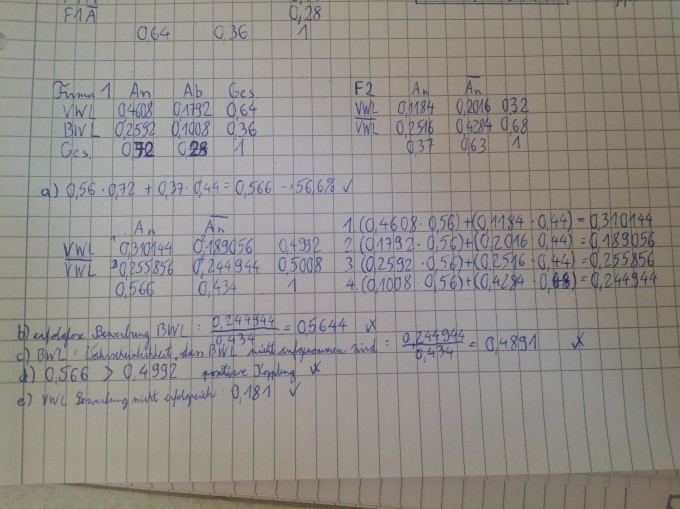 F1 Ā 0,28
0,64 0,36 1
Firma 1 An Ab Ges
VWL 0,4608 0,1792 0,64
BWL 0,2592 0,1008 0,36
Ges. 0,72 0,28 1
F2 An A̅n̅
VWL 0,1184 0,2016 0,32
V̅W̅L̅ 0,2516 0,4284 0,68
0,37 0,63 1
a) 0,56 · 0,72 + 0,37 · 0,44 = 0,566 → 56,6% ✓
An A̅n̅
VWL ¹0,310144 0,189056 0,4992
V̅W̅L̅ ³0,255856 0,244944 0,5008
0,566 0,434 1
1. (0,4608 · 0,56) + (0,1184 · 0,44) = 0,310144
2. (0,1792 · 0,56) + (0,2016 · 0,44) = 0,189056
3. (0,2592 · 0,56) + (0,2516 · 0,44) = 0,255856
4. (0,1008 · 0,56) + (0,4284 · ) = 0,244944
b) erfolglose Bewerbung BWL : 0,244944 / 0,434 = 0,5644 ✗
c) BWL : Wahrscheinlichkeit, dass BWL nicht aufgenommen sind : 0,244944 / 0,434 = 0,4891 ✗
d) 0,566 > 0,4992 positive Kopplung ✗
e) VWL Bewerbung nicht erfolgreich : 0,181 ✓